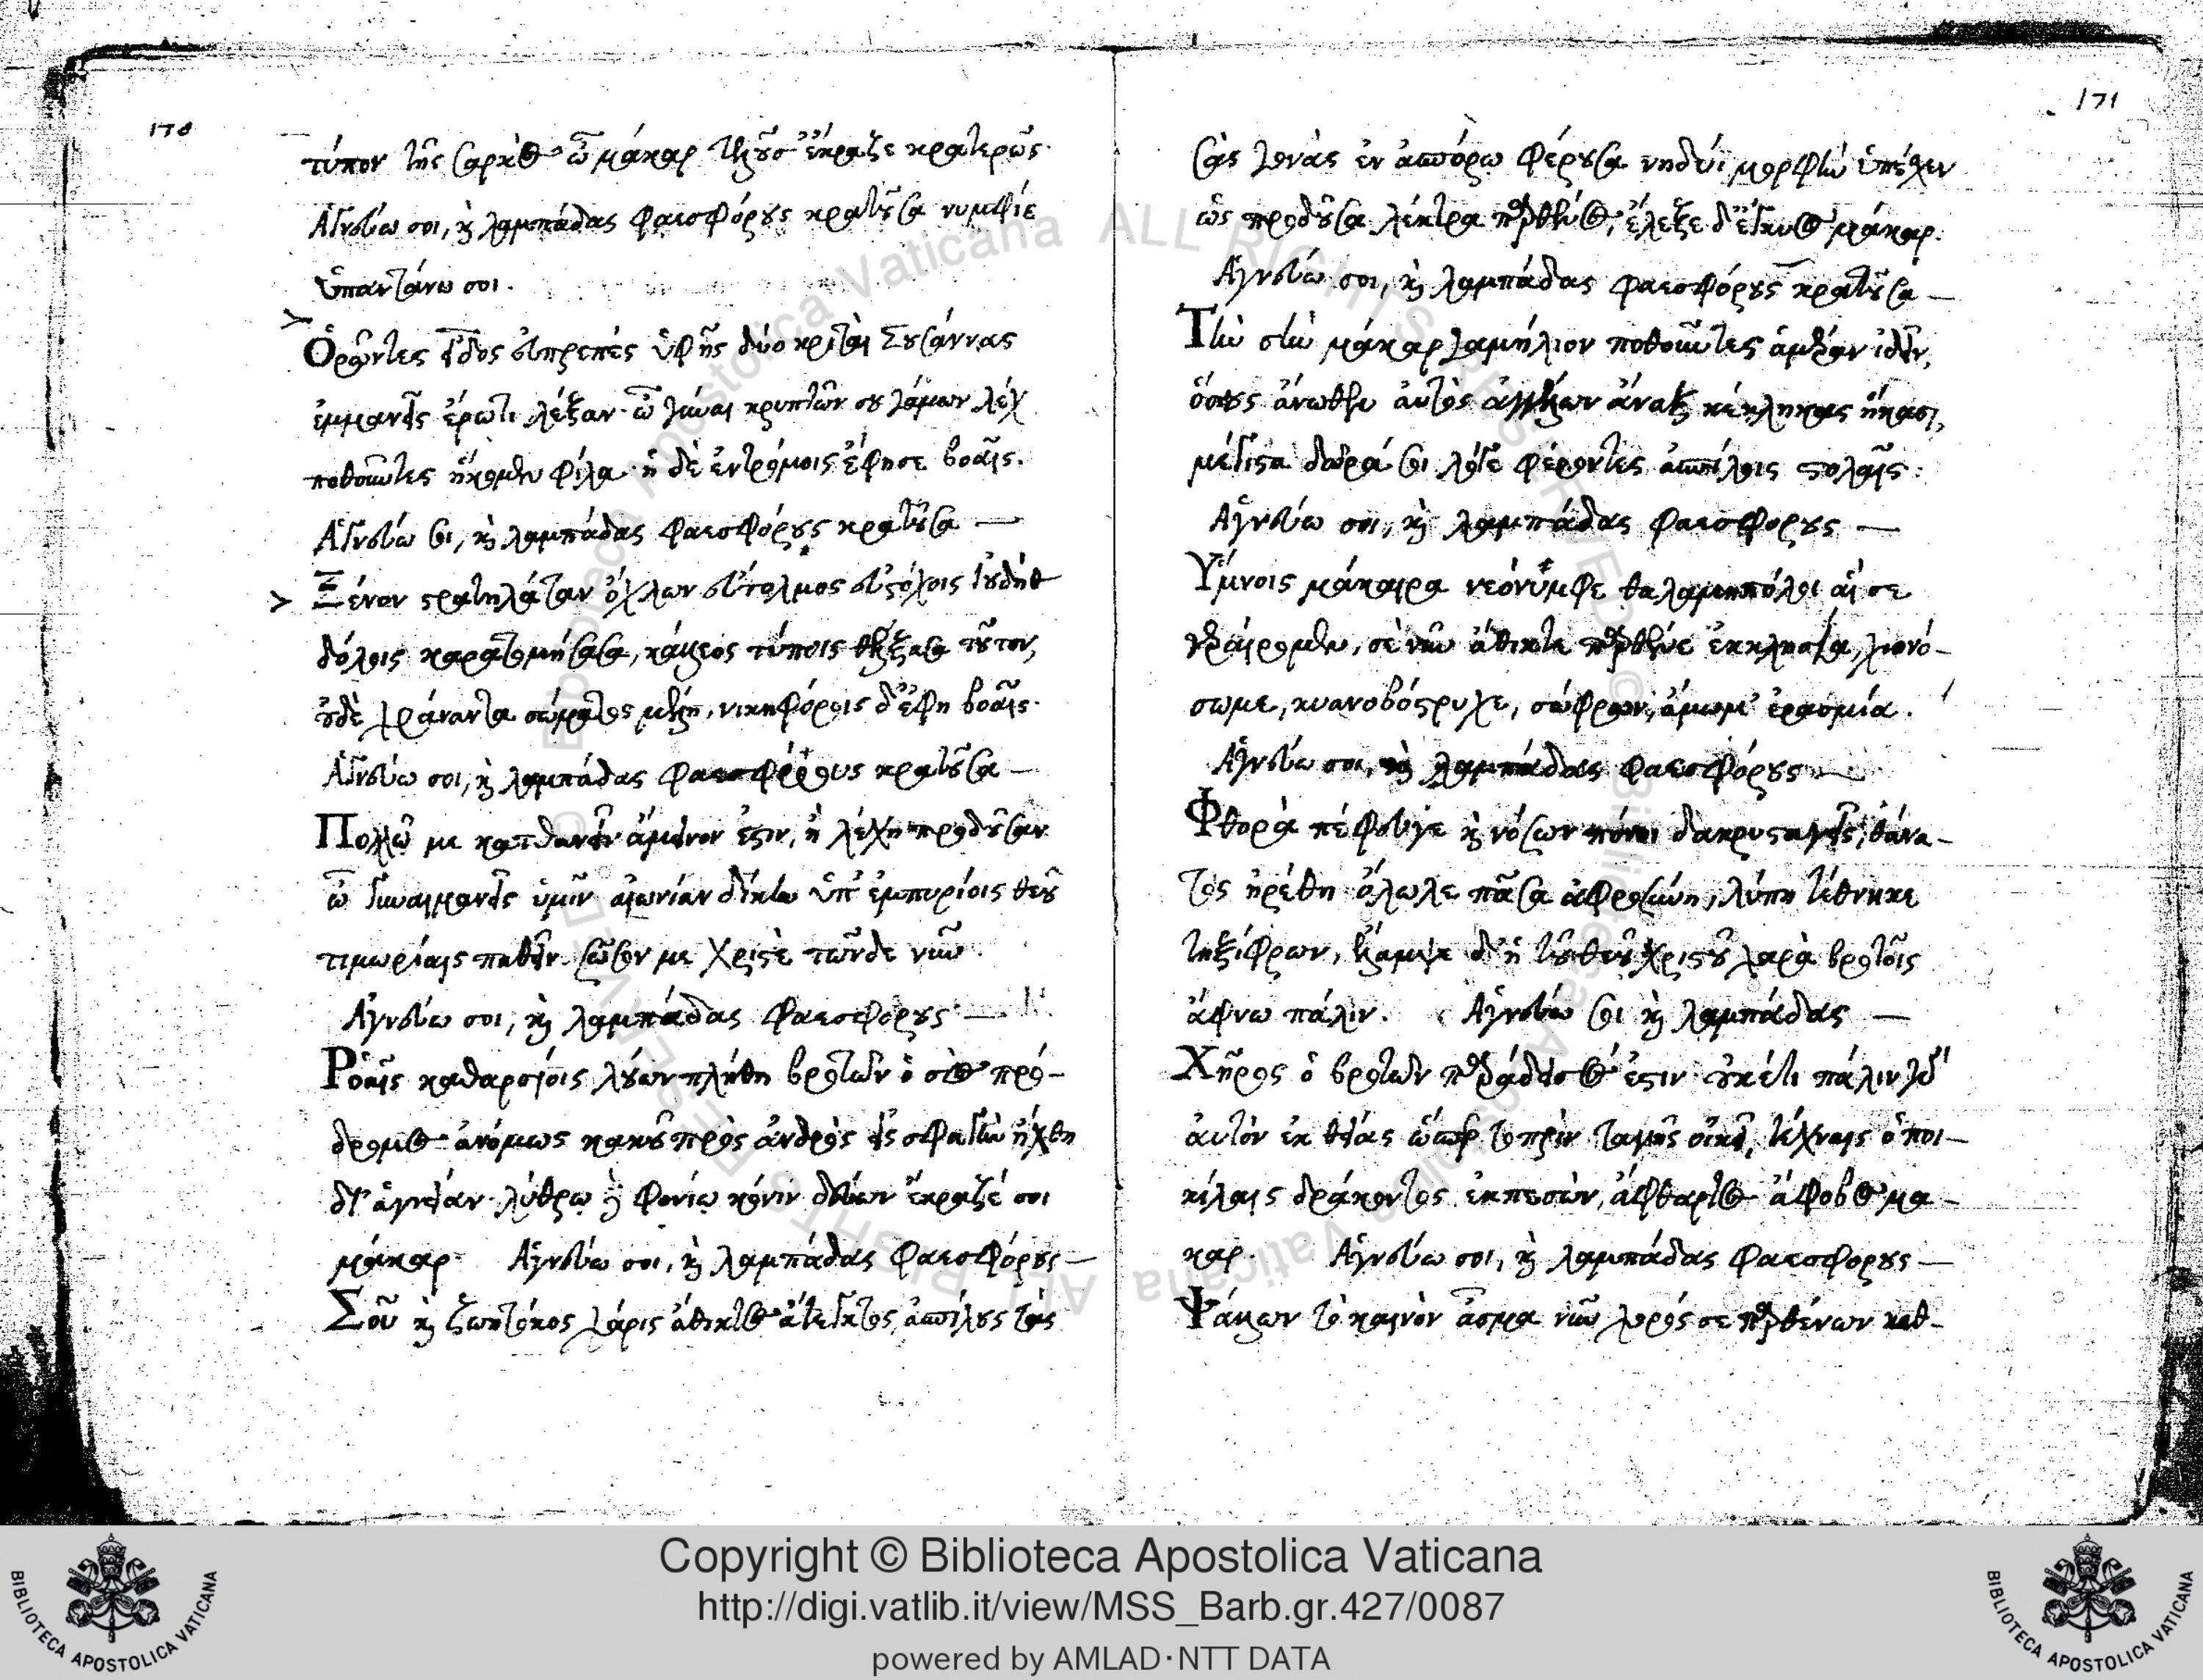 170
τύπον τῆς σαρκὸς ὦ μάκαρ τεοῦς ἔκραζε κρατερῶς·
Ἁγνεύω σοι, καὶ λαμπάδας φαεσφόρους κρατοῦσα νυμφίε
ὑπαντάνω σοι.
Ὁρῶντες εἶδος εὐπρεπὲς ὑφῆς δύο κριταὶ Σουσάννας
ἐμμανεῖς ἔρωτι λέξαν· ὦ γύναι κρυπτῶν σου γάμων λέχ
ποθοῦντες ἥκομεν φίλα· ἡ δὲ ἐντρόμοις ἔφησε βοαῖς.
Ἁγνεύω σοι, καὶ λαμπάδας φαεσφόρους κρατοῦσα —
Ξένον στρατηλάταν ὄχλων εὔτολμος εὐστόχοις Ἰουδήθ
δόλοις καρατομήσασα, κάλλεος τύποις θέλξασα τοῦτον,
οὐδὲ χράναντα σώματος μέλη, νικηφόροις δ' ἔφη βοαῖς·
Ἁγνεύω σοι, καὶ λαμπάδας φαεσφόρους κρατοῦσα —
Πολλῷ με κατθανεῖν ἄμεινον ἐστιν, ἢ λέχη προδοῦσαν
ὦ γυναιμανεῖς ὑμῖν αἰωνίαν δίκην ὑπ' ἐμπυρίοις θεοῦ
τιμωρίαις παθεῖν. σῶσόν με Χριστὲ τῶνδε νῦν.
Ἁγνεύω σοι, καὶ λαμπάδας φαεσφόρους —
Ῥοαῖς καθαρσίοις λούων πλήθη βροτῶν ὁ σὸς πρό-
δρομος ἀνόμως κακοῦ πρὸς ἀνδρὸς εἰς σφαγὴν ἤχθη
δι' ἁγνείαν· λύθρῳ φονίῳ κόνιν δεύων ἔκραζέ σοι
μάκαρ· Ἁγνεύω σοι, καὶ λαμπάδας φαεσφόρους —
Σοῦ καὶ ζωητόκος χάρις ἄθικτος ἄτεγκτος, ἀσπίλους τὰς
171
σὰς γονὰς ἐν ἀσπόρῳ φέρουσα νηδύι μορφὴν ὑπέσχεν
ὡς προδοῦσα λέκτρα παρθένος, ἔλεξε δ' ἔγκυος μάκαρ.
Ἁγνεύω σοι, καὶ λαμπάδας φαεσφόρους κρατοῦσα —
Τὴν σὴν μάκαρ γαμήλιον ποθοῦντες ἁμέραν ἰδεῖν,
ὅσους ἄνωθεν αὐτὸς ἀγγέλων ἄναξ κέκληκας ἥκασι,
μέγιστα δῶρά σοι λόγε φέροντες ἀσπίλοις στολαῖς:
Ἁγνεύω σοι, καὶ λαμπάδας φαεσφορους —
Ὕμνοις μάκαιρα νεόνυμφε θαλαμηπόλοι αἵ σε
γεραίρομεν, σὲ νῦν ἄθικτε παρθένε ἐκκλησία, χιονό-
σωμε, κυανοβόστρυχε, σώφρων, ἄμωμ' ἐρασμία.
Ἁγνεύω σοι, καὶ λαμπάδας φαεσφόρους —
Φθορὰ πέφευγε καὶ νόσων πόνοι δακρυσταγεῖς, θάνα-
τος ᾑρέθη ὄλωλε πᾶσα ἀφροσύνη, λύπη τέθνηκε
τηξίφρων, ἔλαμψε δ' ἡ τοῦ θεοῦ Χριστοῦ χαρὰ βροτοῖς
ἄφνω πάλιν. Ἁγνεύω σοι καὶ λαμπάδας —
Χῆρος ὁ βροτῶν παράδεισός ἐστιν οὐκέτι πάλιν γδ
αὐτὸν ἐκ θείας ὥσπερ τοπρὶν ταγῆς οἰκεῖ, τέχναις ὁ ποι-
κίλαις δράκοντος ἐκπεσὼν, ἄφθαρτος ἄφοβος μα-
καρ. Ἁγνεύω σοι, καὶ λαμπάδας φαεσφορους —
Ψάλλων τὸ καινὸν ἆσμα νῦν χορός σε παρθένων καθ-
Copyright © Biblioteca Apostolica Vaticana
http://digi.vatlib.it/view/MSS_Barb.gr.427/0087
powered by AMLAD·NTT DATA
BIBLIOTECA APOSTOLICA VATICANA
BIBLIOTECA APOSTOLICA VATICANA